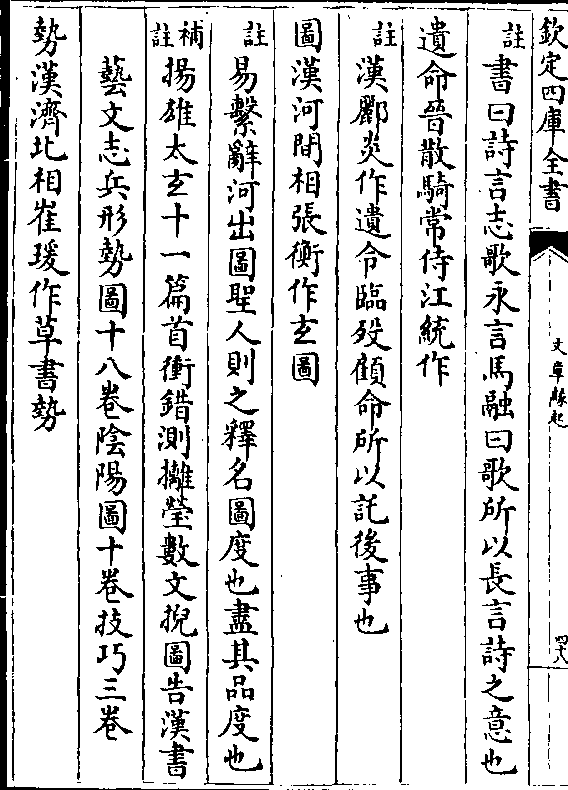 欽定四庫全書
文章緣起
四十八
註書曰詩言志歌永言馬融曰歌所以長言詩之意也
遺命晉散騎常侍江統作
註漢酈炎作遺令臨殁顧命所以託後事也
圖漢河間相張衡作玄圖
註易繫辭河出圖聖人則之釋名圖度也盡其品度也
補註揚雄太玄十一篇首衝錯測攡瑩數文掜圖告漢書
藝文志兵形勢圖十八卷陰陽圖十卷技巧三卷
勢漢濟北相崔瑗作草書勢